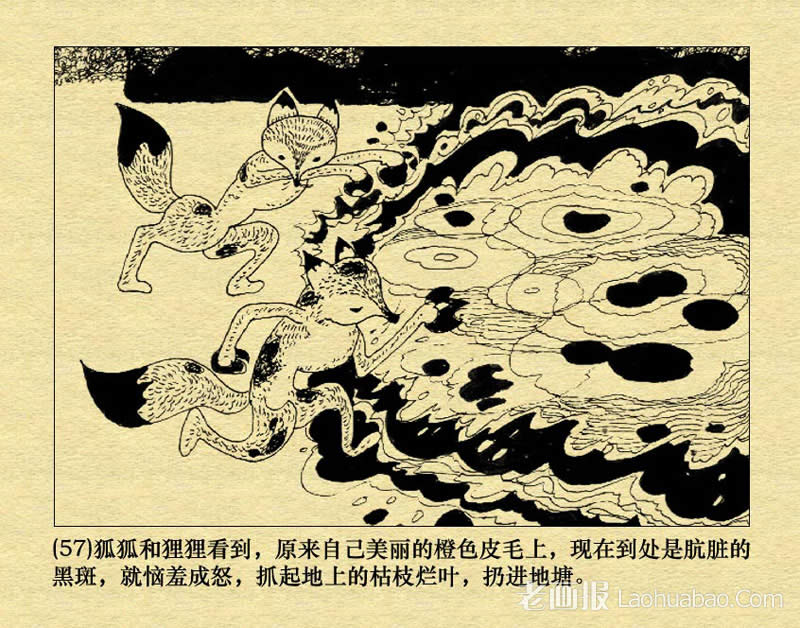 (57)狐狐和狸狸看到，原来自己美丽的橙色皮毛上，现在到处是肮脏的
黑斑，就恼羞成怒，抓起地上的枯枝烂叶，扔进地塘。
老画报 Laohuabao.Com